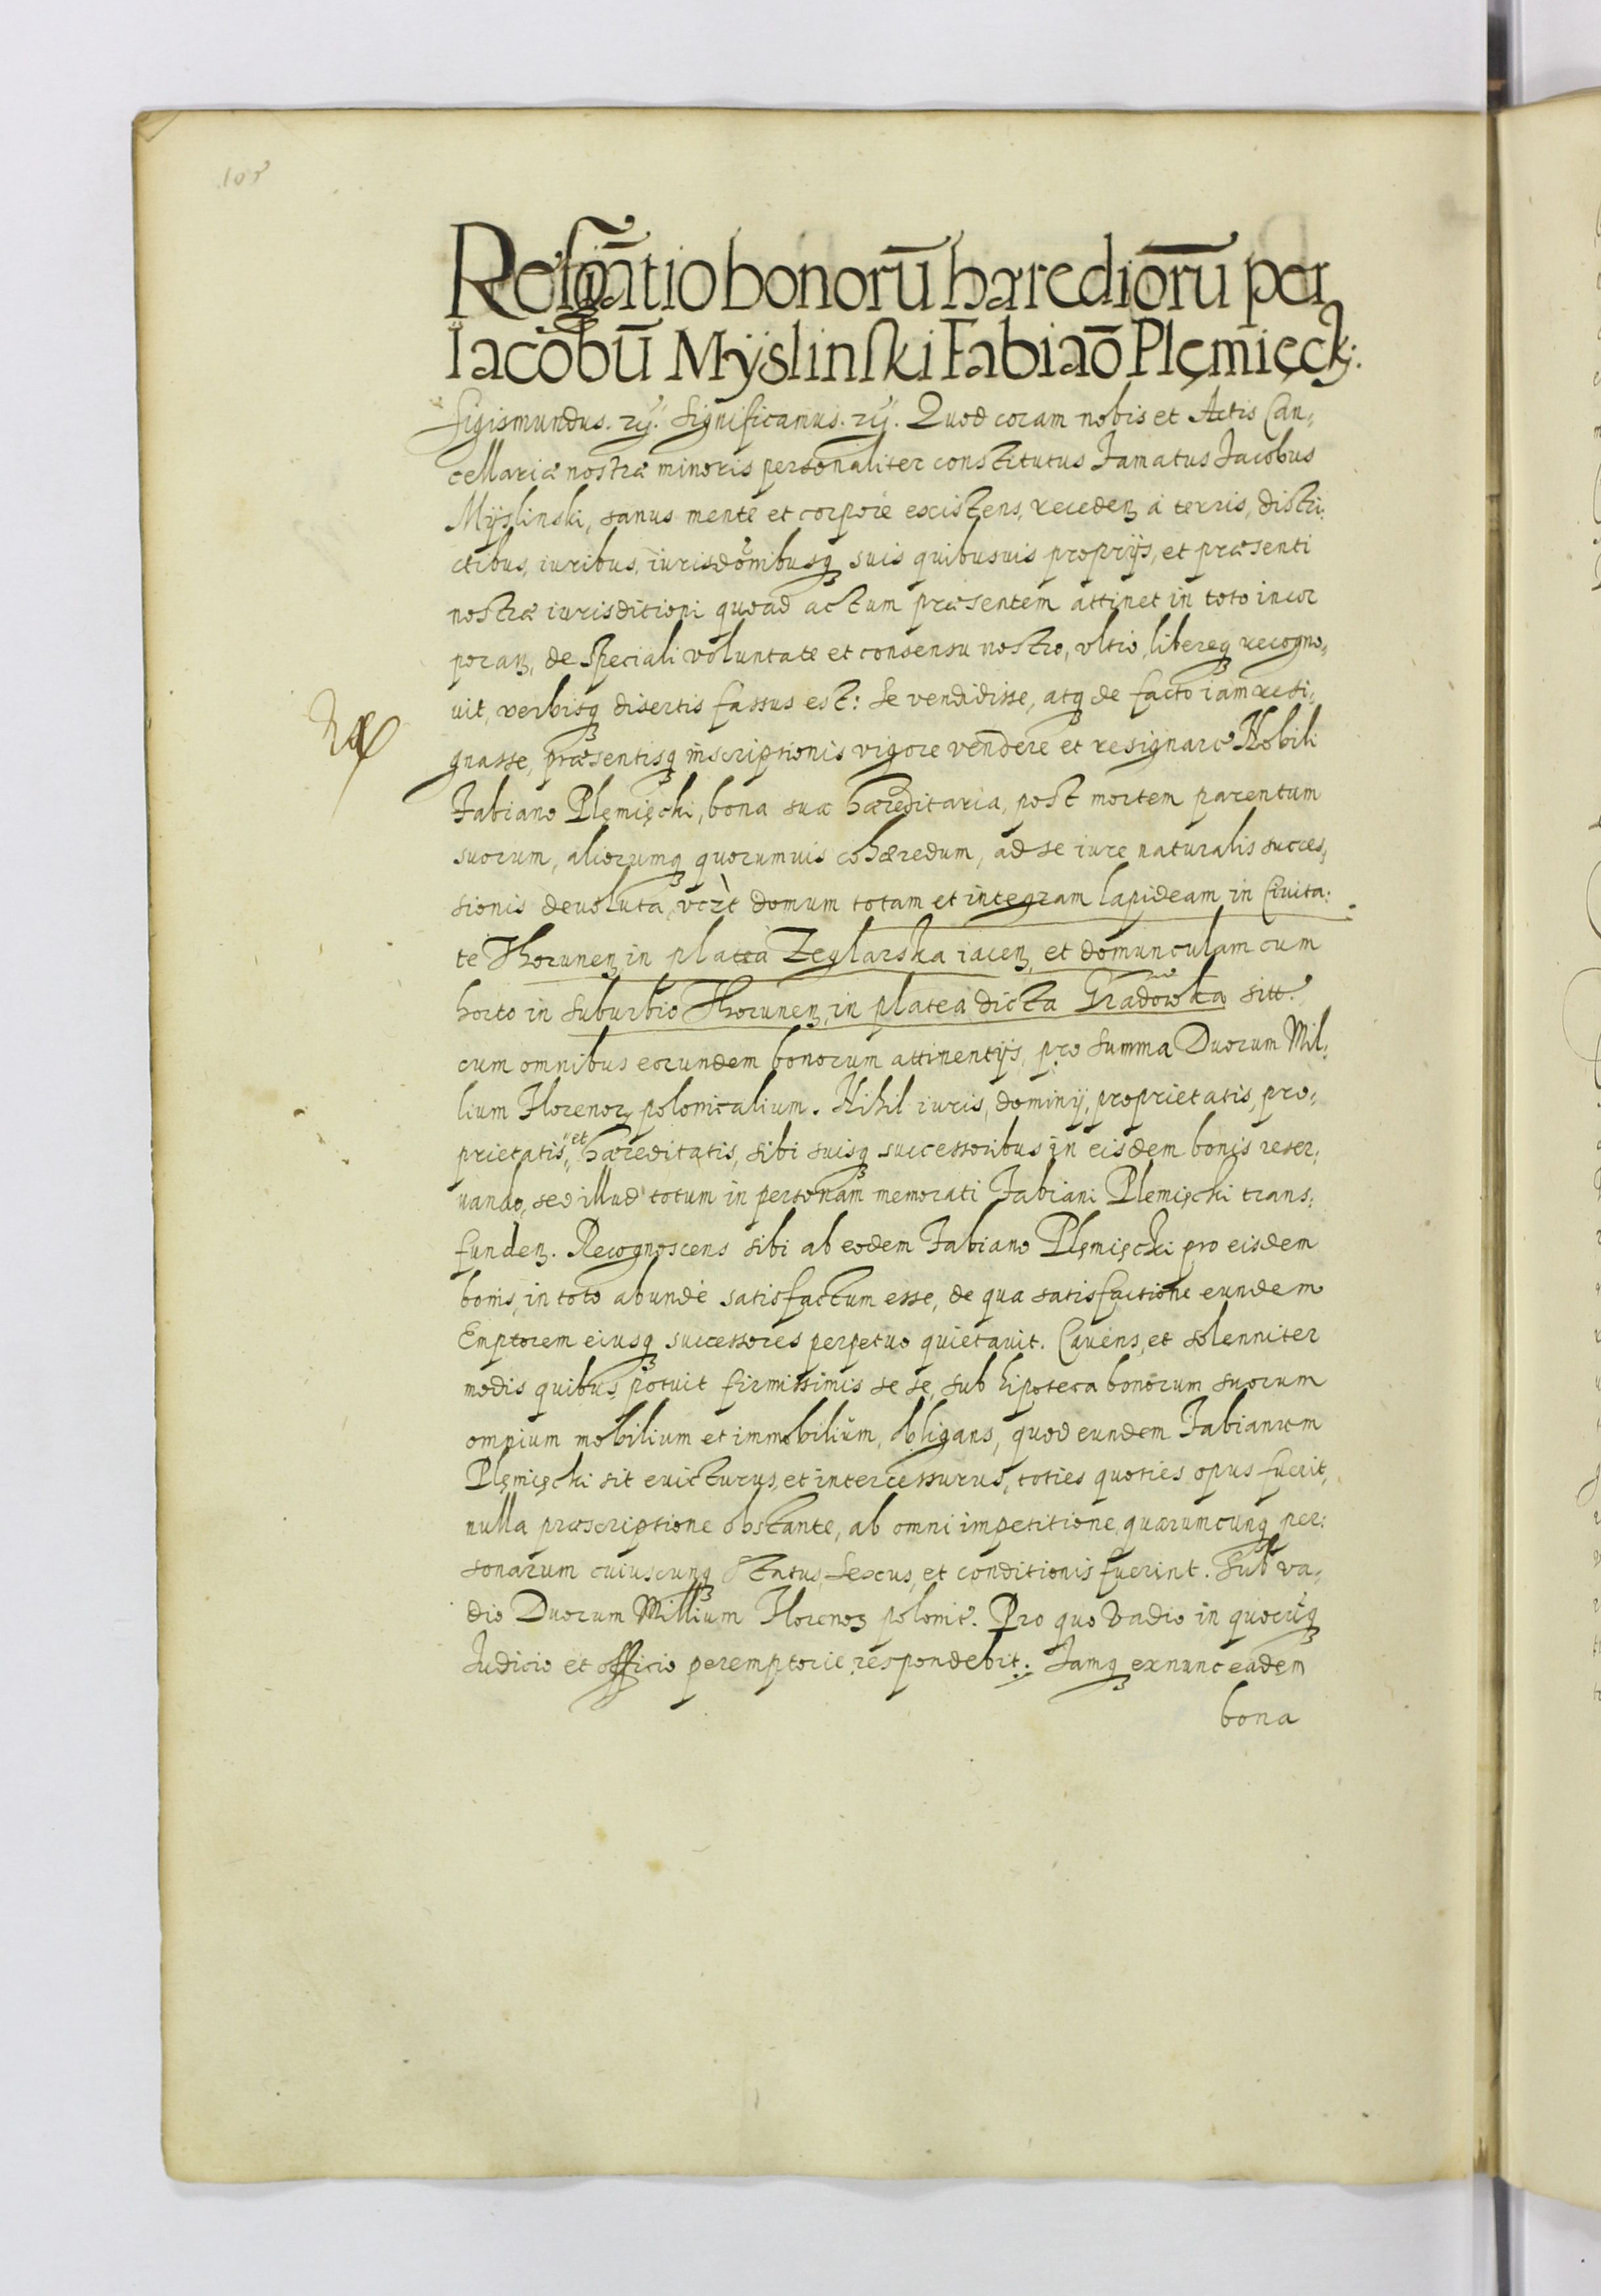 Resignatio bonorū hæredioru̅ per
Iacobū Mÿslinski Fabiaō Plęmięck:
Sigismundus. rÿ. Significamus. rÿ. Quod coram nobis et Actis Can,
cellariæ nostræ minoris personaliter constitutus Famatus Jacobus
Mÿslinski, sanus mente et corpore existens, receden̄ a terris, distri,
ctibus, iuribus, iurisdōnibusq̨ suis quibusuis proprijs, et præsenti
nostræ iurisditioni quoad actum præsentem attinet in toto incor
poran̄, de speciali voluntate et consensu nostro, vltro, libereq̨ recogno,
uit, verbisq̨ disertis fassus est: Se vendidisse, atq̨ de facto iam resi,
gnasse, præsentisq̨ inscriptionis vigore vendere et resignare Nobili
Fabiano Plęmięcki, bona sua hæreditaria, post mortem parentum
suorum, aliorumq̨ quorumuis cohæredum, ad se iure naturalis succes,
sionis devoluta, vczt domum totam et integram lapideam in Ciuita:
te Thorunen̄ in platea Zeglarska iacen̄, et domunculam cum
horto in suburbio Thorunen̄, in platea dicta Gradowka sitt.
cum omnibus eorundem bonorum attinentijs, pro summa Duorum Mil:
lium Florenor̨ polonicalium. Nihil iuris, dominij, proprietatis, pro,
prietatis, et hæreditatis, sibi suisq̨ successoribus in eisdem bonis reser,
uando, sed illud totum in personam memorati Fabiani Plemięcki trans:
funden̄. Recognoscens sibi ab eodem Fabiano Plęmięcki pro eisdem
bonis, in toto abundè satisfactum esse, de qua satisfactione eundem
Emptorem eiusq̨ successores perpetuo quietauit. Cauens, et solenniter
modis quibus potuit firmissimis se se, sub hipoteca bonorum suorum
omnium mobilium et immobilium, obligans, quod eundem Fabianum
Plęmięcki sit euicturus, et intercessurus, toties quoties opus fuerit,
nulla præscriptione obstante, ab omni impetitione, quarumcunq̨ per:
sonarum cuiuscunq̨ Status, Sexus, et conditionis fuerint. Sub va,
dio Duorum Millium Florenor̨ polonic. Pro quo Vadio in quocūq̨
Iudicio et officio peremptorie respondebit: Iamq̨ ex nunc eadem
bona